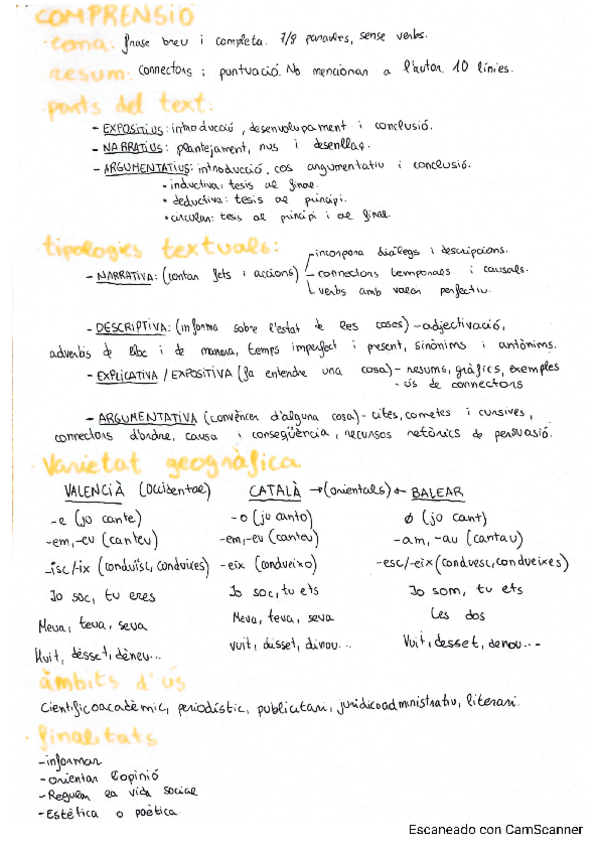 COMPRENSIÓ
· tema: frase breu i completa. 7/8 paraules, sense verbs.
· resum: connectors i puntuació. No mencionar a l'autor. 10 línies.
· parts del text:
- EXPOSITIUS: introducció, desenvolupament i conclusió.
- NARRATIUS: plantejament, nus i desenllaç.
- ARGUMENTATIUS: introducció, cos argumentatiu i conclusió.
• inductiva: tesis al final.
• deductiva: tesis al principi.
• circular: tesis al principi i al final.
· tipologies textuals:
- NARRATIVA: (contar fets i accions)
- incorpora diàlegs i descripcions.
- connectors temporals i causals.
- verbs amb valor perfectiu.
- DESCRIPTIVA: (informa sobre l'estat de les coses) - adjectivació,
adverbis de lloc i de manera, temps imperfect i present, sinònims i antònims.
- EXPLICATIVA / EXPOSITIVA (fa entendre una cosa) - resums, gràfics, exemples
- ús de connectors
- ARGUMENTATIVA (convèncer d'alguna cosa) - cites, cometes i cursives,
connectors d'ordre, causa i conseqüència, recursos retòrics de persuasió.
· Varietat geogràfica
VALENCIÀ (Occidental) CATALÀ → (orientals) ← BALEAR
-e (jo cante) -o (jo canto) Ø (jo cant)
-em, -eu (canteu) -em, -eu (canteu) -am, -au (cantau)
-isc/-ix (conduïsc, conduïxes) -eix (condueixo) -esc/-eix (conduesc, condueixes)
Jo soc, tu eres Jo soc, tu ets Jo som, tu ets
Meua, teua, seua Meva, teva, seva Les dos
Huit, désset, dèneu... vuit, disset, dinou... Vuit, desset, denou...
àmbits d'ús
Cientificoacadèmic, periodístic, publicitari, juridicoadministratiu, literari.
· finalitats
- informar
- orientar l'opinió
- Regular la vida social
- Estètica o poètica
Escaneado con CamScanner